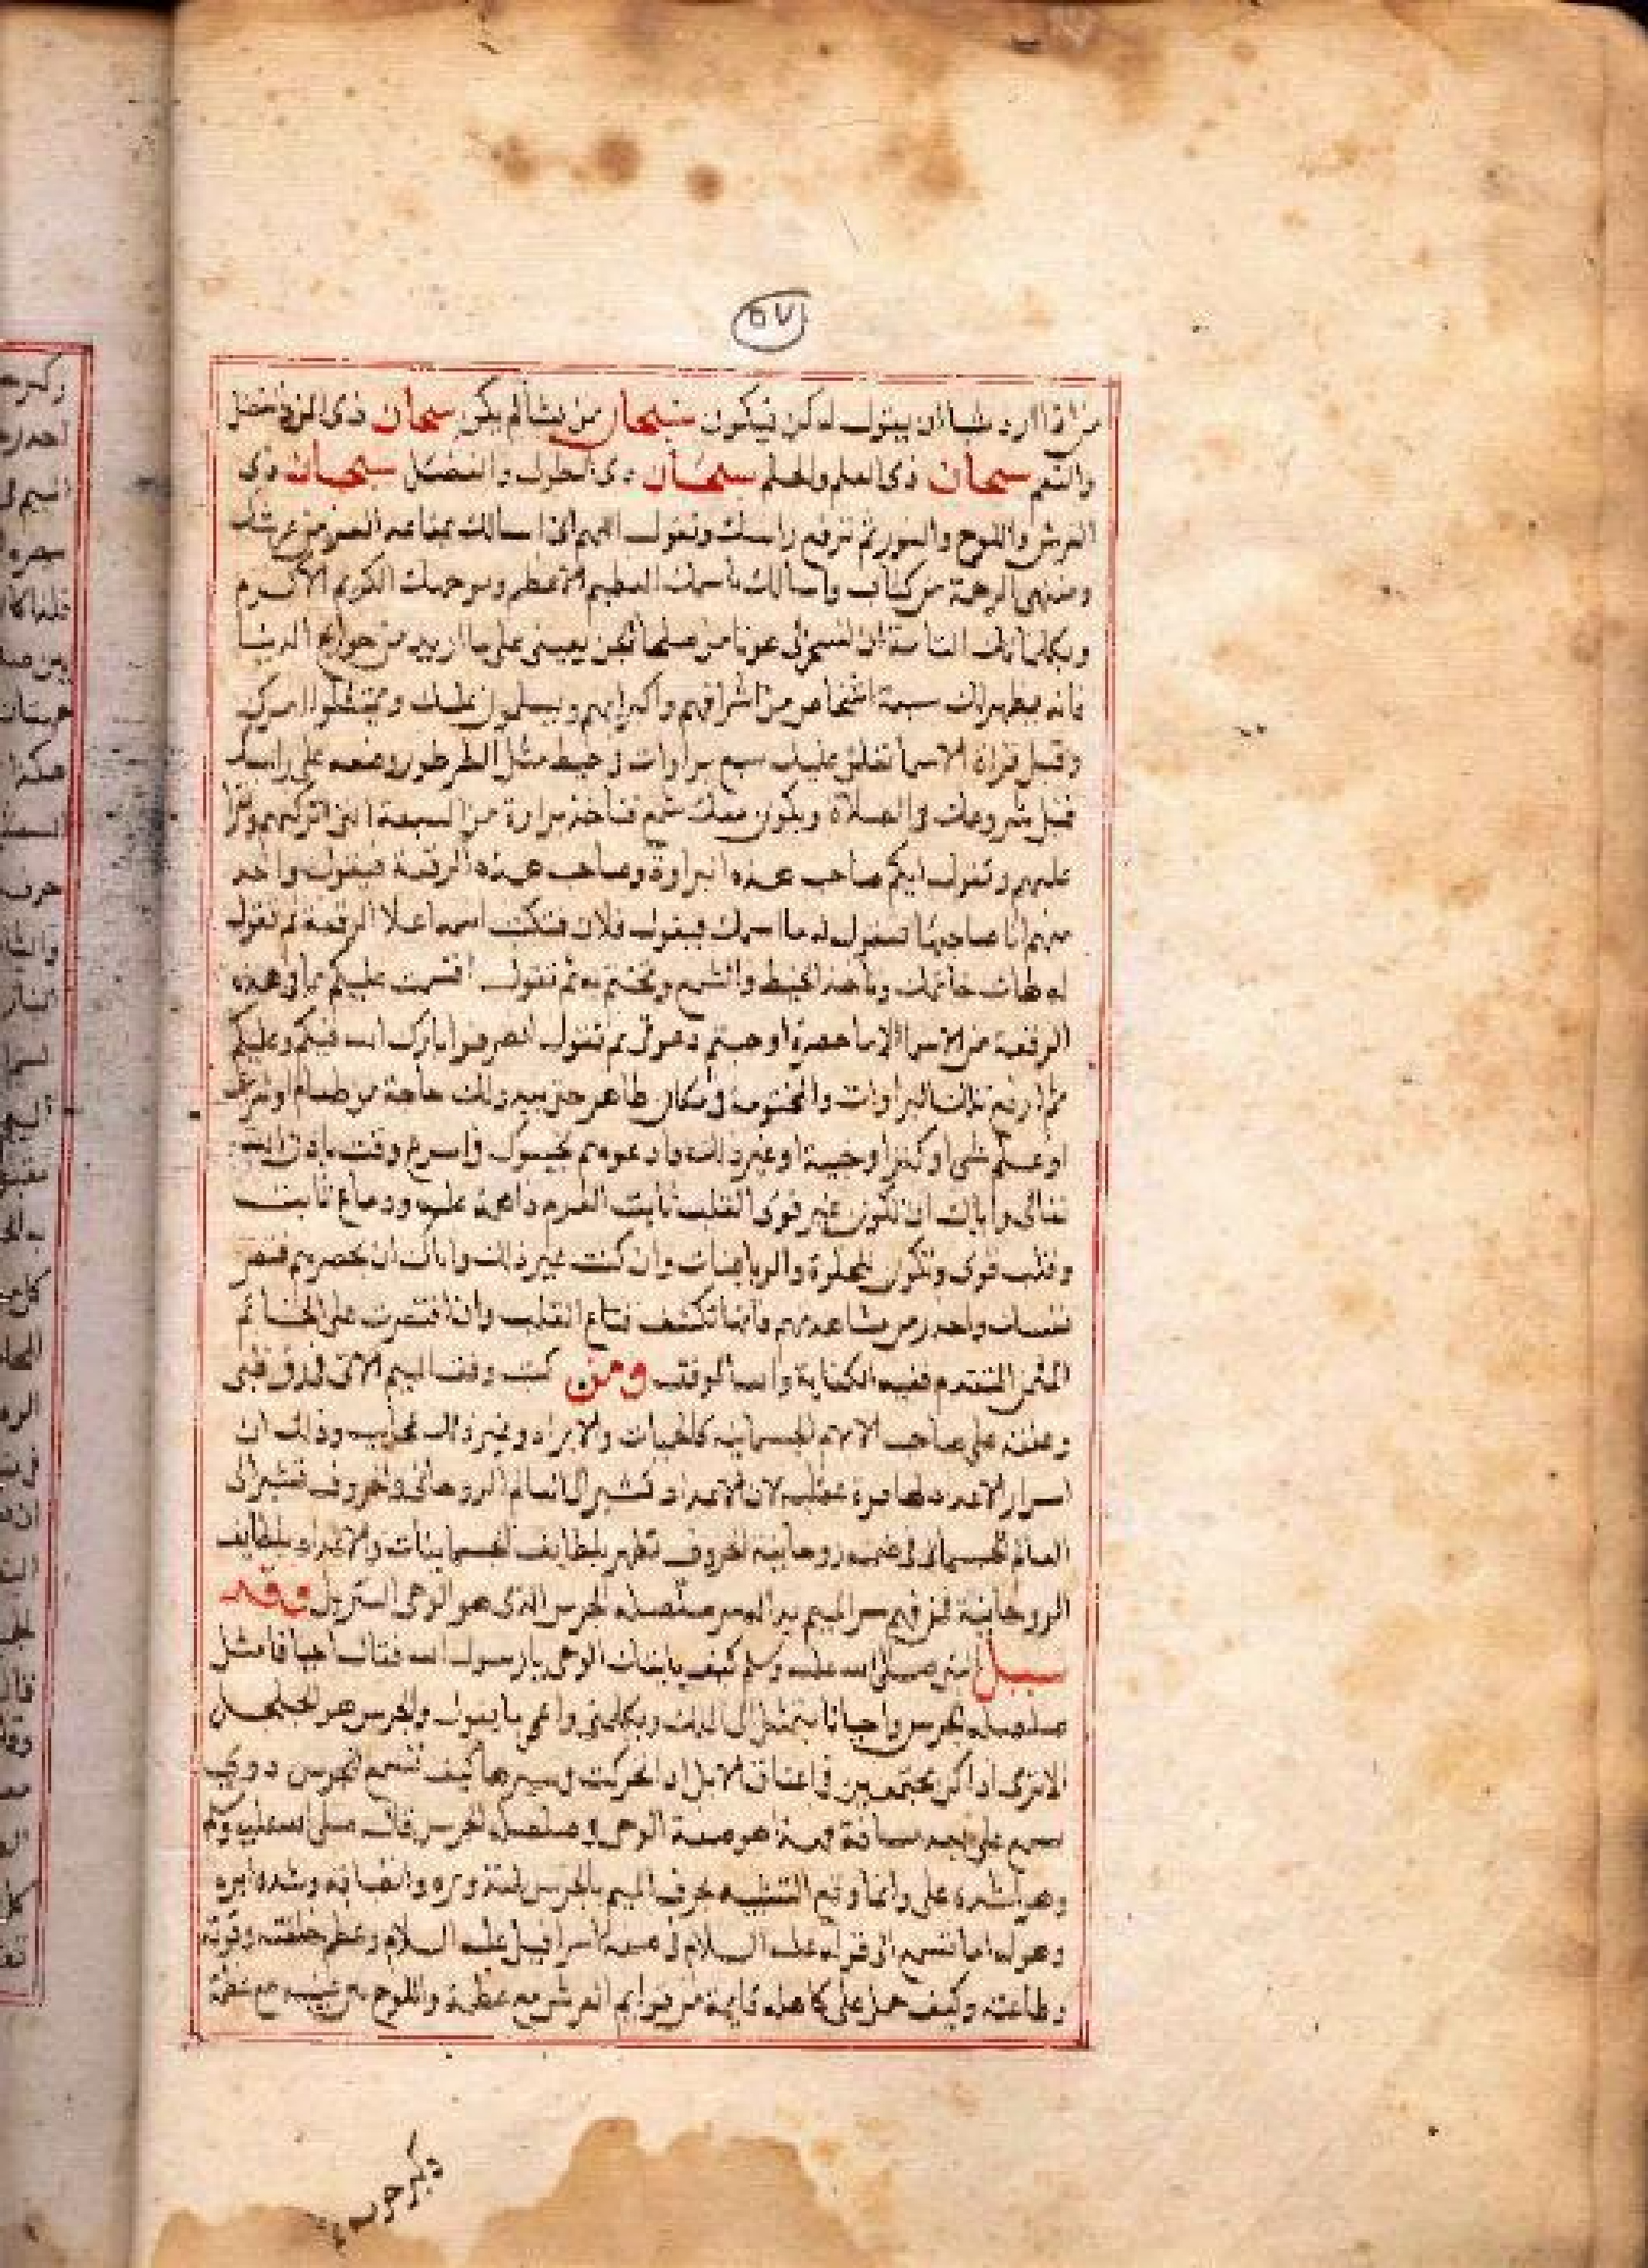 ٥٧
من اذا اراد شيا ان يقول له كن فيكون سبحان من يشا لم يكن سبحان ذى المن والفضل
والنعم سبحان ذى العلم والحلم سبحان ذى الطول والفضل سبحان ذى
العرش واللوح والنور ثم ترفع راسك وتقول اللهم انى اسالك بمقاعد العز من عرشك
ومنتهى الرحمة من كتابك واسالك باسمك العظيم الاعظم وبوجهك الكريم الاكرم
وبكلماتك التامة ان تسخر لى عونا من صلحا الجن يعيننى على ما اريد من حوايج الدنيا
فانه يظهر لك سبعة اشخاص من اشرافهم واكبرايهم ويسلمون عليك ويمتثلوا امرك
وقبل قراة الاسما تعلق عليك سبع براوات فى خيط مثل الطرطور وضعه على راسك
قبل شروعك فى الصلاة ويكون معك شمع فتاخذ براوة من السبعة التى
عليهم وتقول ايكم صاحب هذه البراوة وصاحب هذه الرقعة فيقول واحد
منهم انا صاحبها تقول له ما اسمك فيقول فلان فتكتب اسمه اعلا الرقعة ثم تقول
له هات خاتمك وتاخذ الخيط والشمع وتختم به ثم تقول اقسمت عليكم بما فى هذه
الرقعة من الاسرا الا ما حضرة اوجبتم دعوتى ثم تقول انصرفوا بارك الله فيكم وعليكم
ثم ارفع تلك البراوات والمختومة فى مكان طاهر حتى يبد ولك حاجة من طعام او شراب
او علم شى او كنز او خبية او غير ذلك وادعوهم يجيبوك فى اسرع وقت باذن الله
تعالى واياك ان تكون غير قوى القلب ثابت العزم ودماغ ثابت
وقلب قوى وتكون للخلوة والرياضات وان كنت غير ذلك واياك ان تحضرهم فتضر
نفسك واحذر من مشاهدتهم فانها تكشف قناع القلب وان اقتصرت على الخاتم
المثمن المتقدم ففيه الكفاية والله الموفق ومن كتب وفق الميم الاتى فى رق ظبى
وعلقه على صاحب الالام الجسمانية كالحميات والابراد وغير ذلك وذلك ان
اسرار الاعداد عظيمة لان الاعداد تشير الى العالم الروحانى والحروف تشير الى
العالم الجسمانى روحانية الحروف تظهر بلطايف الجسمانيات والاعداد بلطايف
الروحانية فمن فهم سر الميم سر صلصلة الجرس الذى هو الوحى الشريف وقد
سيل النبى صلى الله عليه وسلم كيف ياتيك الوحى يا رسول الله فقال احيانا مثل
صلصلة الجرس واحيانا يتمثل لى الملك ويكلمنى واعى ما يقول والجرس هو الجلجل
الا ترى اذا كن مجتمعين فى اعناق الابل اذا تحركت فى سيرها كيف تسمع للجرس دوى
يسمع على بعد مسافة فهذا هو صفة الوحى فى صلصلة الجرس فقال صلى الله عليه وسلم
وهو اشده على وانما وقع التشبيه بحرف الميم بالجرس وشدة امره
وهو له اما تنسبه الى قوله عليه السلام فى صفة اسرافيل عليه السلام وعظم خلقته وقوته
وطاعته وكيف حمل على كاهله قايمة من قوايم العرش مع عظمة واللوح بين عينيه مع عظمة